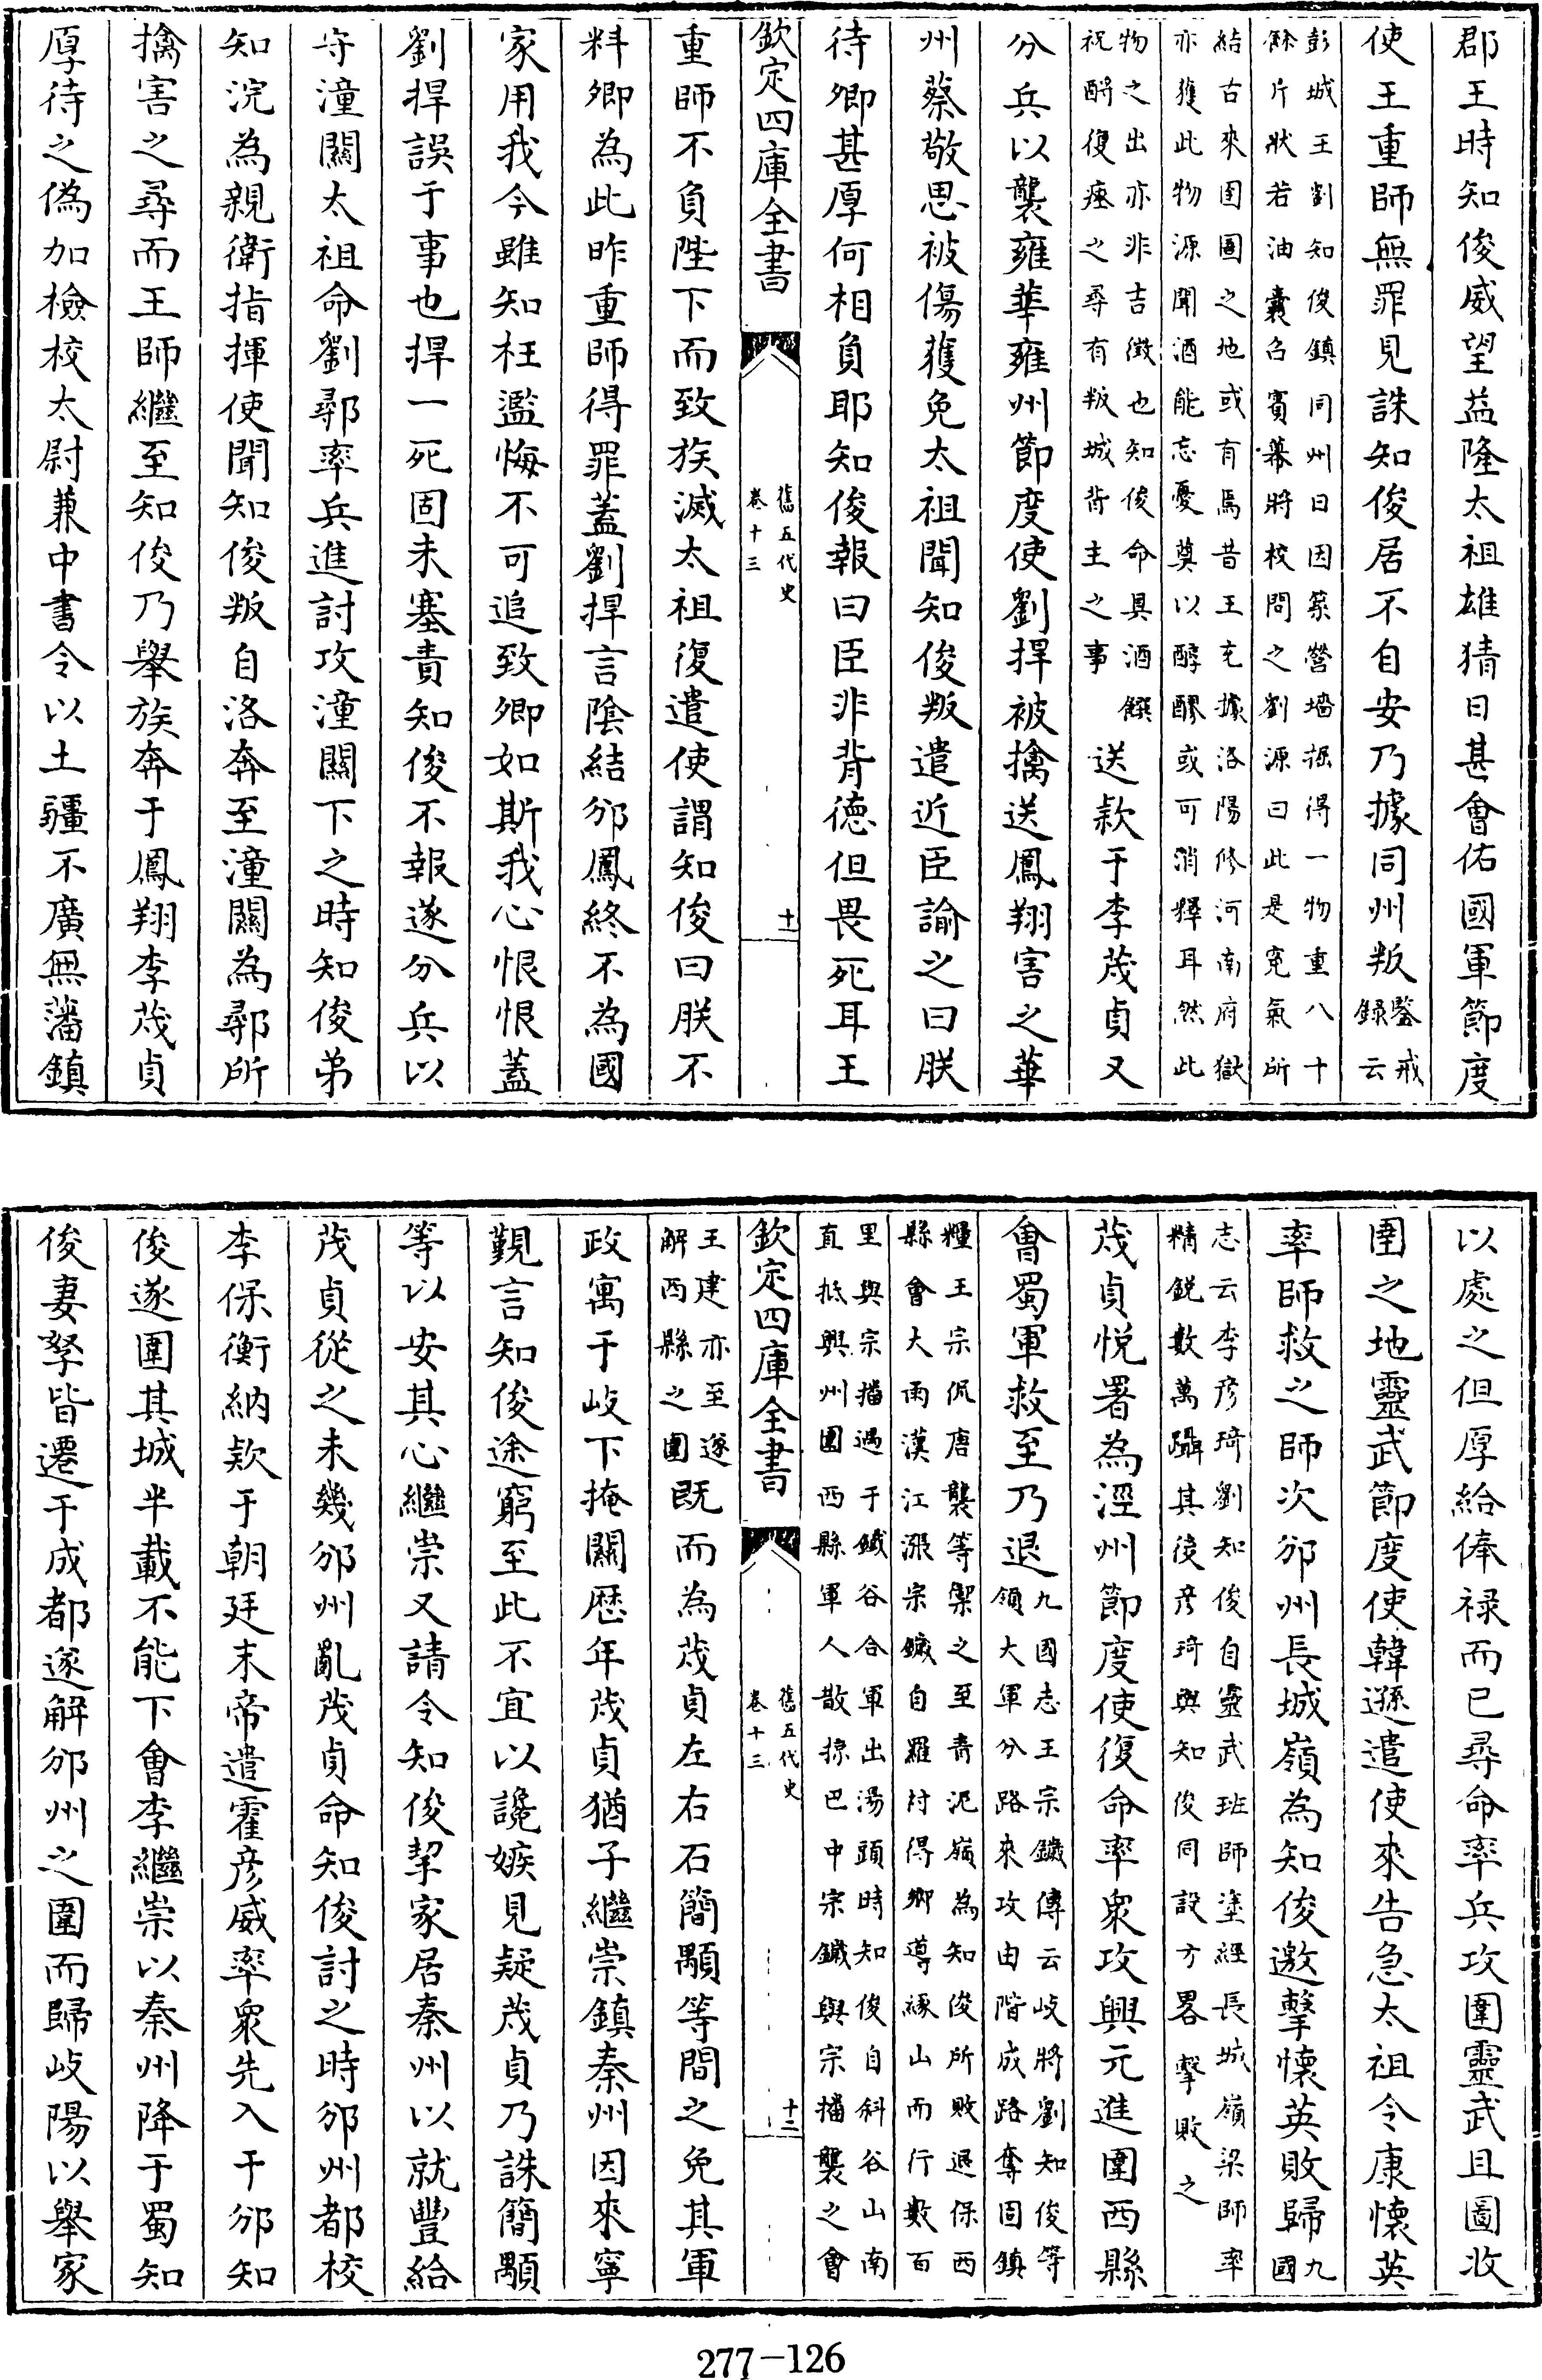 郡王時知俊威望益隆太祖雄猜日甚會佑國軍節度
使王重師無罪見誅知俊居不自安乃據同州叛鑒戒
錄云
彭城王劉知俊鎮同州日因築營墻掘得一物重八十
餘斤狀若油囊召賓幕將校問之劉源曰此是寃氣所
結古來囹圄之地或有焉昔王充據洛陽修河南府獄
亦獲此物源聞酒能忘憂奠以醇醪或可消釋耳然此
物之出亦非吉徵也知俊命具酒饌
祝酹復瘞之尋有叛城背主之事
送款于李茂貞又
分兵以襲雍華雍州節度使劉捍被擒送鳳翔害之華
州蔡敬思被傷獲免太祖聞知俊叛遣近臣諭之曰朕
待卿甚厚何相負耶知俊報曰臣非背德但畏死耳王
欽定四庫全書
舊五代史
卷十三
十一
重師不負陛下而致族滅太祖復遣使謂知俊曰朕不
料卿為此昨重師得罪蓋劉捍言陰結邠鳳終不為國
家用我今雖知枉濫悔不可追致卿如斯我心恨恨蓋
劉捍誤于事也捍一死固未塞責知俊不報遂分兵以
守潼關太祖命劉鄩率兵進討攻潼關下之時知俊弟
知浣為親衛指揮使聞知俊叛自洛奔至潼關為鄩所
擒害之尋而王師繼至知俊乃舉族奔于鳳翔李茂貞
厚待之偽加檢校太尉兼中書令以土疆不廣無藩鎮
以處之但厚給俸禄而已尋命率兵攻圍靈武且圖收
圉之地靈武節度使韓遜遣使來告急太祖令康懷英
率師救之師次邠州長城嶺為知俊邀擊懷英敗歸九
國
志云李彥琦劉知俊自靈武班師塗經長城嶺梁師率
精鋭數萬躡其後彥琦與知俊同設方畧擊敗之
茂貞悦署為涇州節度使復命率衆攻興元進圍西縣
會蜀軍救至乃退
九國志王宗鐬傳云岐將劉知俊等
領大軍分路來攻由階成路奪固鎮
糧王宗侃唐襲等禦之至青泥嶺為知俊所敗退保西
縣會大雨漢江漲宗鐬自羅村得鄉導緣山而行數百
里與宗播遇于鐵谷合軍出湯頭時知俊自斜谷山南
直抵興州圍西縣軍人散掠巴中宗鐬與宗播襲之會
欽定四庫全書
舊五代史
卷十三
十二
王建亦至遂
解西縣之圍
既而為茂貞左右石簡顒等間之免其軍
政寓于岐下掩關歷年茂貞猶子繼崇鎮秦州因來寧
覲言知俊途窮至此不宜以讒嫉見疑茂貞乃誅簡顒
等以安其心繼崇又請令知俊挈家居秦州以就豐給
茂貞從之未幾邠州亂茂貞命知俊討之時邠州都校
李保衡納款于朝廷末帝遣霍彥威率衆先入于邠知
俊遂圍其城半載不能下會李繼崇以秦州降于蜀知
俊妻孥皆遷于成都遂解邠州之圍而歸岐陽以舉家
277-126